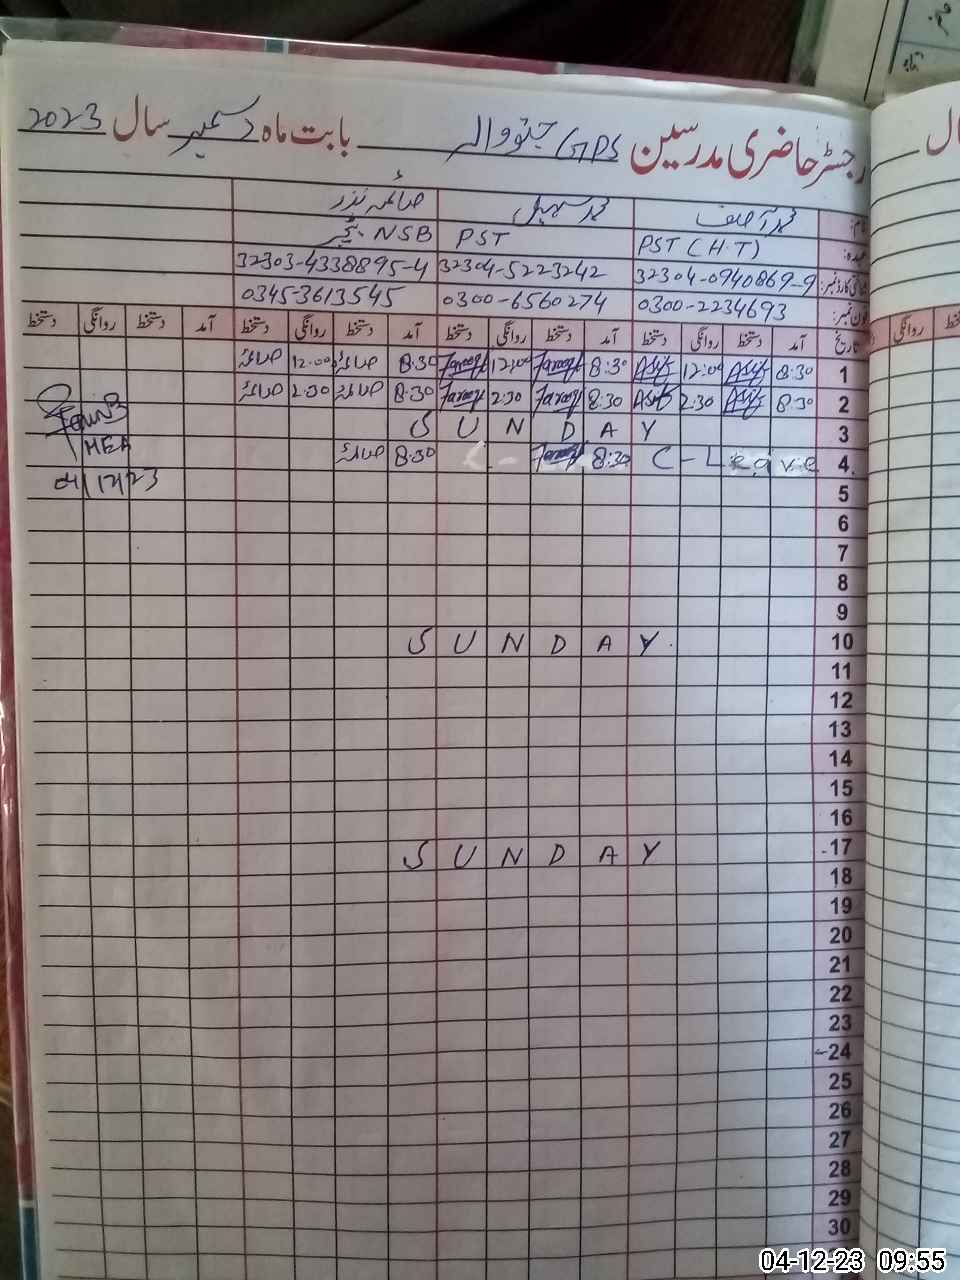 رجسٹر حاضری مدرسین GPS جتووالہ بابت ماہ دسمبر سال 2023
نام: محمد آصف محمد سہیل صائمہ نذر
عہدہ: PST (H.T) PST NSB
شناختی کارڈ نمبر: 32304-0940869-9 32304-5223242 32303-4338895-4
فون نمبر: 0300-2234693 0300-6560274 0345-3613545
تاریخ آمد دستخط روانگی دستخط آمد دستخط روانگی دستخط آمد دستخط روانگی دستخط آمد دستخط روانگی دستخط
1 8:30 Asif 12:00 Asif 8:30 Farooq 12:00 Farooq 8:30 صائمہ 12:00 صائمہ
2 8:30 Asif 2:30 Asif 8:30 Farooq 2:30 Farooq 8:30 صائمہ 2:30 صائمہ
3 SUNDAY
4 C-Leave 8:30 Farooq 8:30 صائمہ
MEA
04/12/23
5
6
7
8
9
10 SUNDAY
11
12
13
14
15
16
17 SUNDAY
18
19
20
21
22
23
24
25
26
27
28
29
30
سال
روانگی
04-12-23 09:55